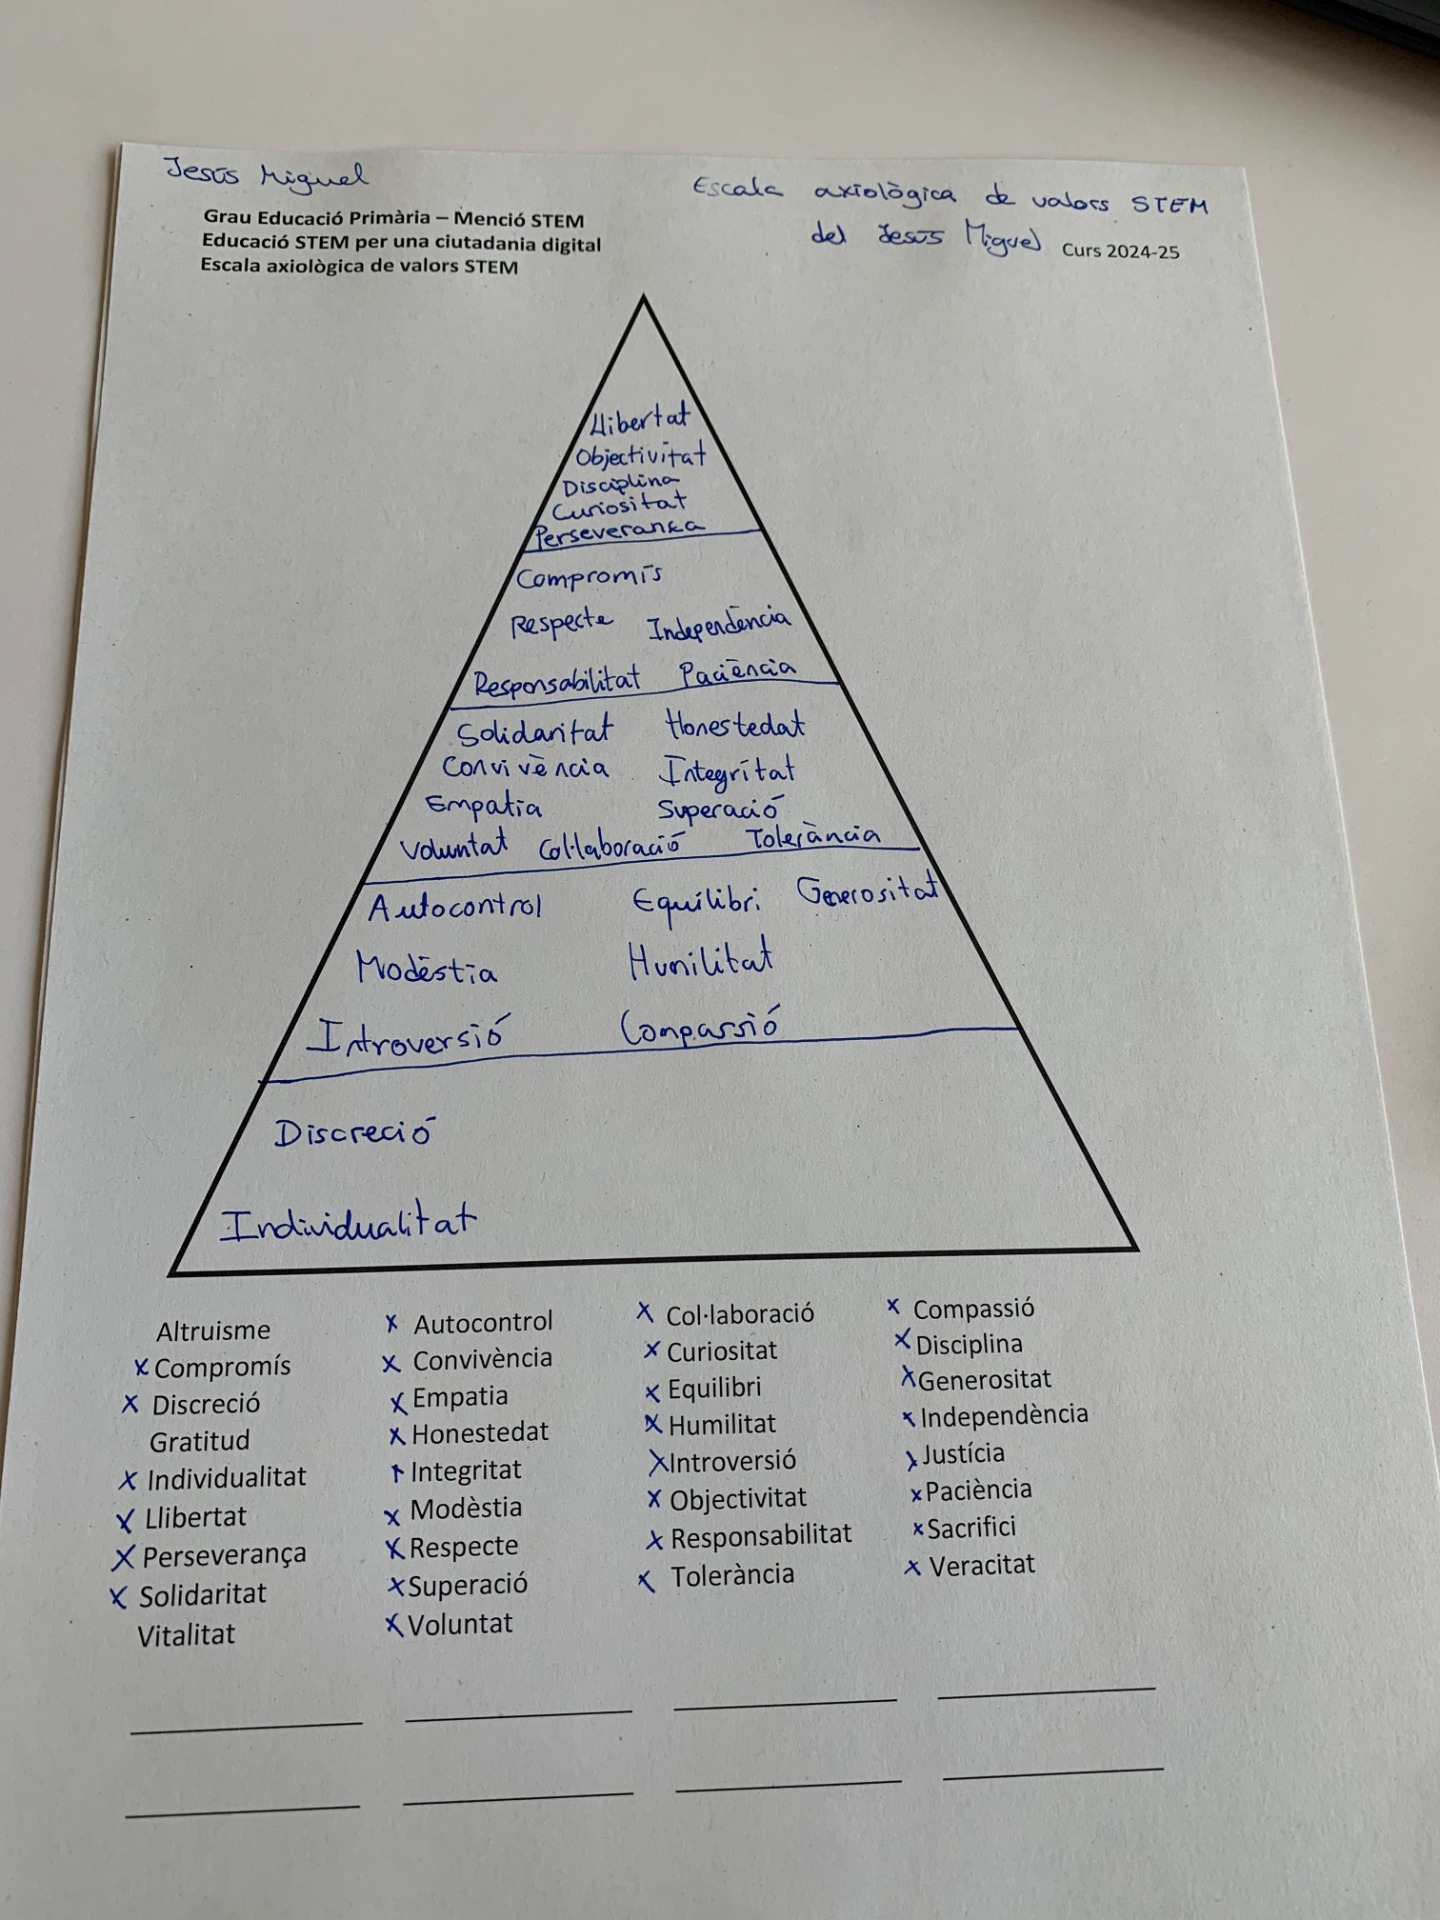 Jesús Miguel
Escala axiològica de valors STEM
del Jesús Miguel
Grau Educació Primària – Menció STEM
Educació STEM per una ciutadania digital
Escala axiològica de valors STEM
Curs 2024-25
Llibertat
Objectivitat
Disciplina
Curiositat
Perseverança
Compromís
Respecte Independència
Responsabilitat Paciència
Solidaritat Honestedat
Convivència Integritat
Empatia Superació
Voluntat Col·laboració Tolerància
Autocontrol Equilibri Generositat
Modèstia Humilitat
Introversió Compassió
Discreció
Individualitat
Altruisme x Autocontrol x Col·laboració x Compassió
x Compromís x Convivència x Curiositat x Disciplina
x Discreció x Empatia x Equilibri x Generositat
Gratitud x Honestedat x Humilitat x Independència
x Individualitat x Integritat x Introversió x Justícia
x Llibertat x Modèstia x Objectivitat x Paciència
x Perseverança x Respecte x Responsabilitat x Sacrifici
x Solidaritat x Superació x Tolerància x Veracitat
Vitalitat x Voluntat